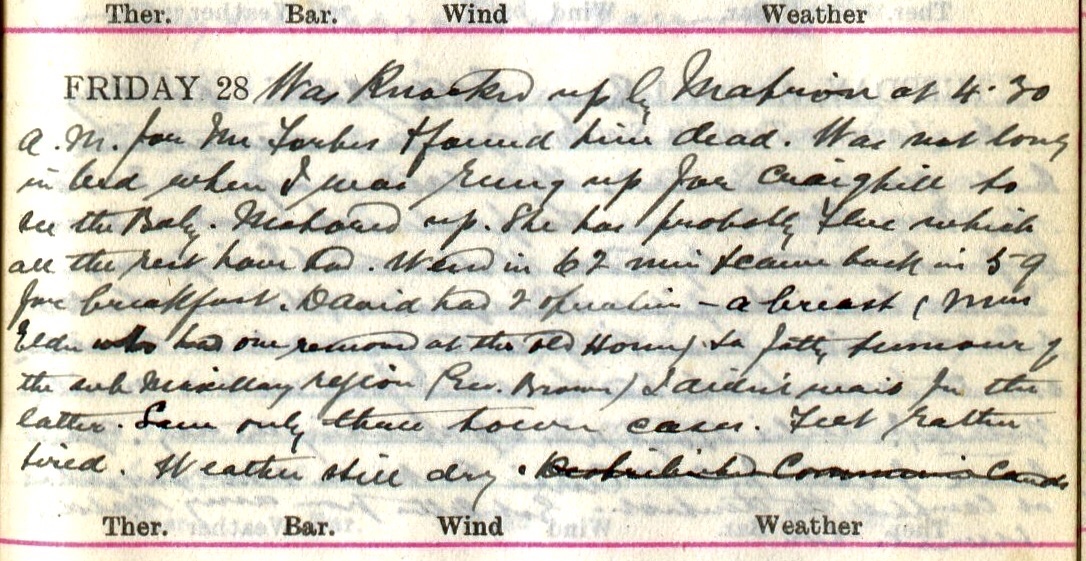 Ther. Bar. Wind Weather
FRIDAY 28 Was Knocked up by Matron at 4.30
a.m. for Mr Forbes & found him dead. Was not long
in bed when I was rung up for Craighill to
see the Baby. Motored up. She has probably Flue which
all the rest have had. Went in 62 min & came back in 59
for breakfast. David had 2 operations - a breast (Miss
Elder who had one removed at the old Home) & a fatty tumour of
the sub Maxillary region (Geo. Brown) I didn't wait for the
latter. Saw only three town cases. Felt rather
tired. Weather still dry. Distributed Communion Cards
Ther. Bar. Wind Weather